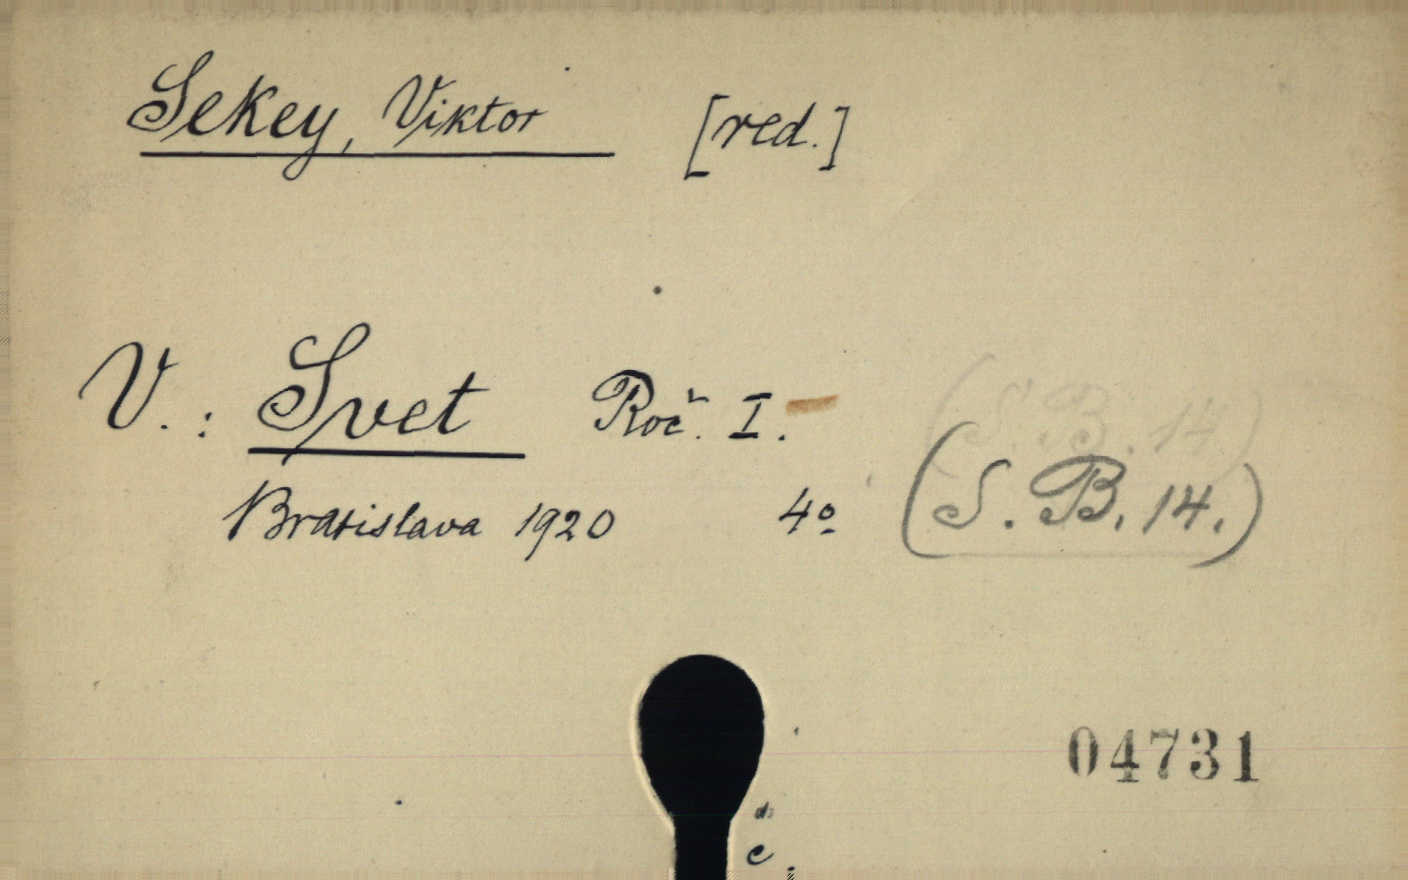 Sekey, Viktor [red.]
V.: Svet Roč. I.
(S. B. 14)
Bratislava 1920 4º (S. B. 14.)
04731
c